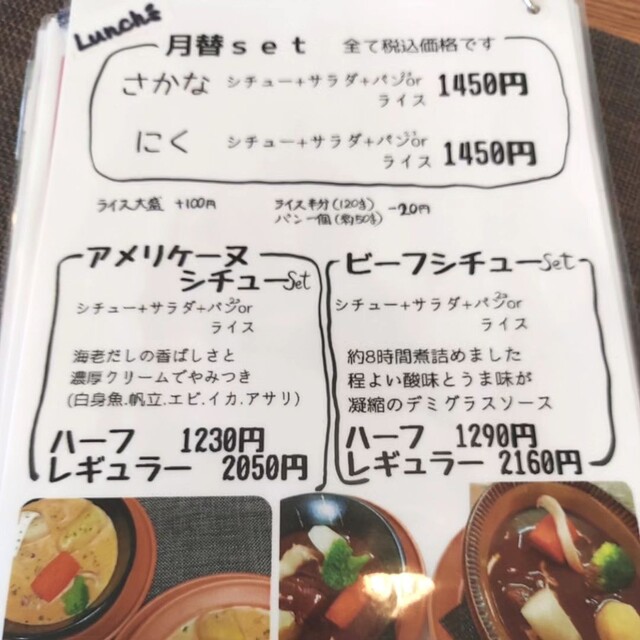 Lunch
月替set 全て税込価格です
さかな シチュー+サラダ+パンor 1450円
ライス
にく シチュー+サラダ+パンor 1450円
ライス
ライス大盛 +100円
ライス半分(120g) -20円
パン一個(約50g)
アメリケーヌ
シチューset
シチュー+サラダ+パンor
ライス
海老だしの香ばしさと
濃厚クリームでやみつき
(白身魚.帆立.エビ.イカ.アサリ)
ハーフ 1230円
レギュラー 2050円
ビーフシチューset
シチュー+サラダ+パンor
ライス
約8時間煮詰めました
程よい酸味とうま味が
凝縮のデミグラスソース
ハーフ 1290円
レギュラー 2160円